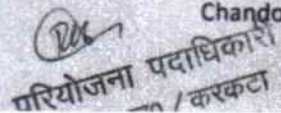 Chando
परियोजना पदाधिकारी
/ करकटा